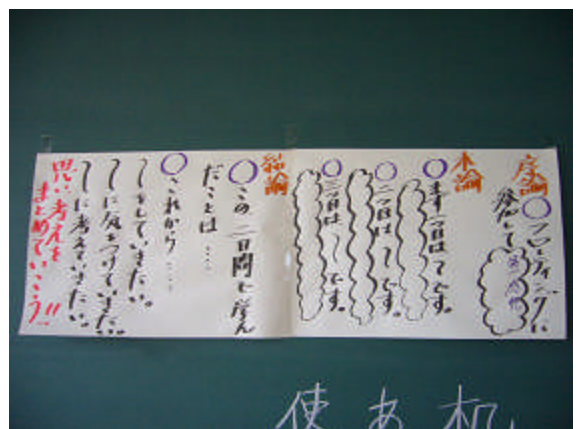 序論
○フローティングに
参加して
本論
○まず一つ目は〜です。
○二つ目は〜です。
○三つ目は〜です。
結論
○この二日間で学ん
だことは……
○これから……
〜をしていきたい。
〜に気をつけていきたい。
〜に考えていきたい。
思い、考えを
まとめていこう!!
使 あ 机